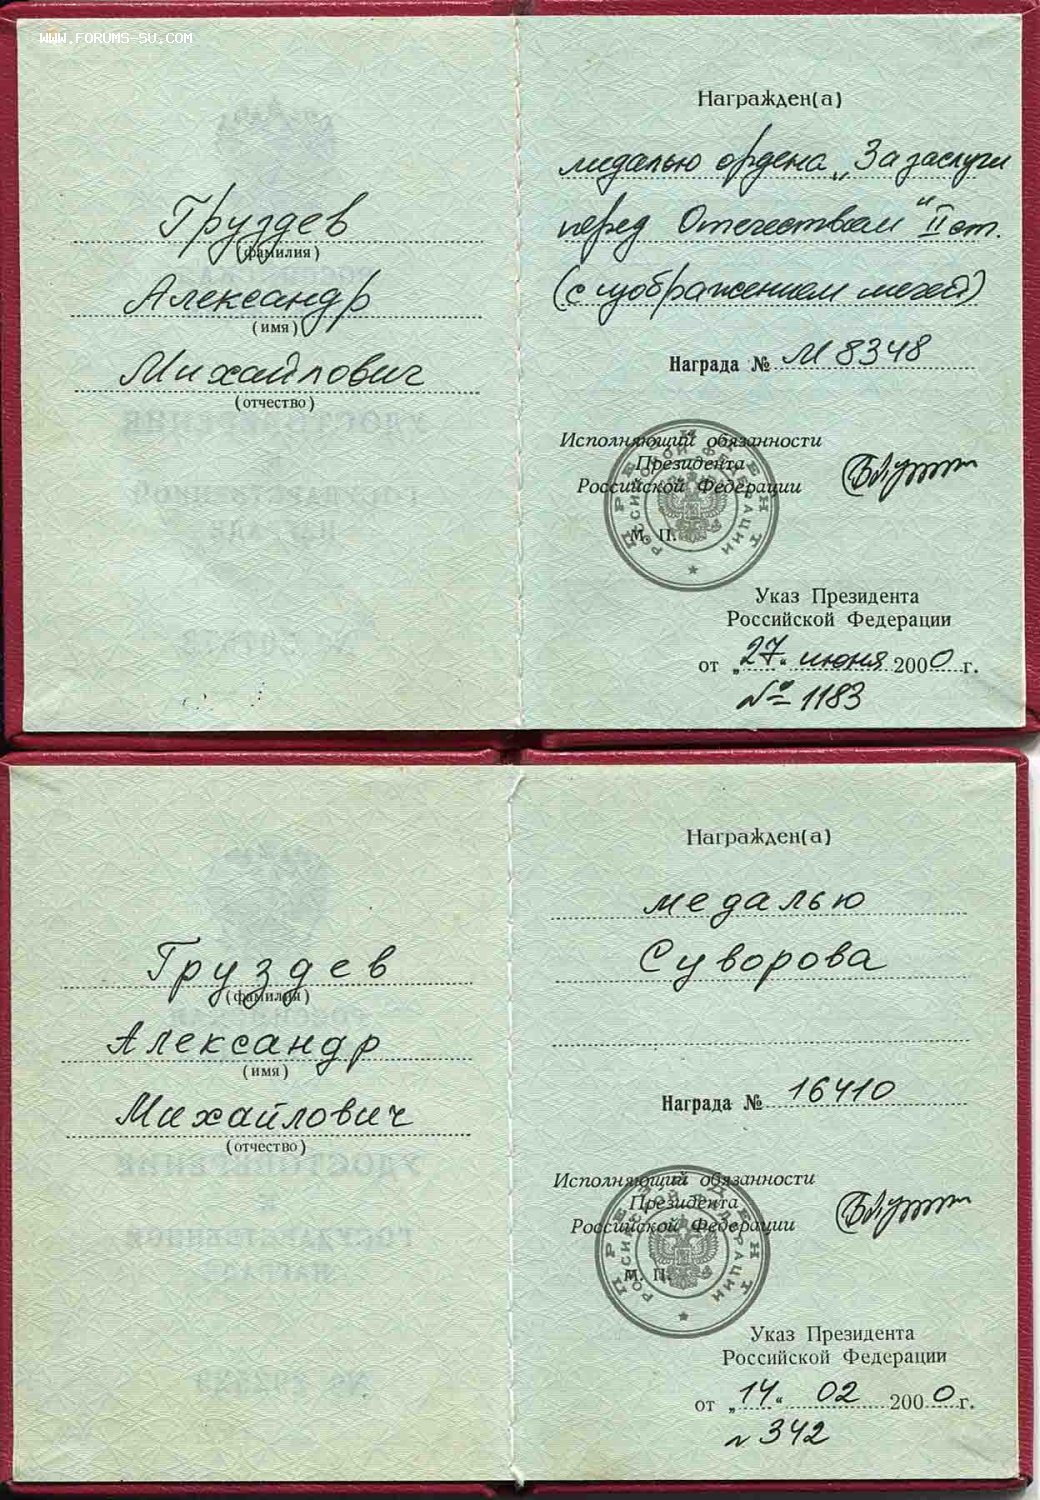 www.forums-su.com
Груздев
(фамилия)
Александр
(имя)
Михайлович
(отчество)
Награжден(а)
медалью ордена „За заслуги
перед Отечеством“ II ст.
(с изображением мечей)
Награда № М 8348
Исполняющий обязанности
Президента
Российской Федерации
ПРЕЗИДЕНТ
РОССИЙСКОЙ ФЕДЕРАЦИИ
М. П.
Указ Президента
Российской Федерации
от „27“ июня 2000 г.
№ 1183
Груздев
(фамилия)
Александр
(имя)
Михайлович
(отчество)
Награжден(а)
медалью
Суворова
Награда № 16410
Исполняющий обязанности
Президента
Российской Федерации
ПРЕЗИДЕНТ
РОССИЙСКОЙ ФЕДЕРАЦИИ
М. П.
Указ Президента
Российской Федерации
от „14“ 02 2000 г.
№ 342